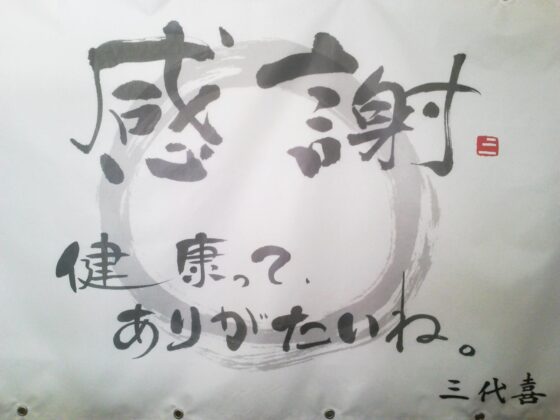 感謝
健康って、
ありがたいね。
三代喜